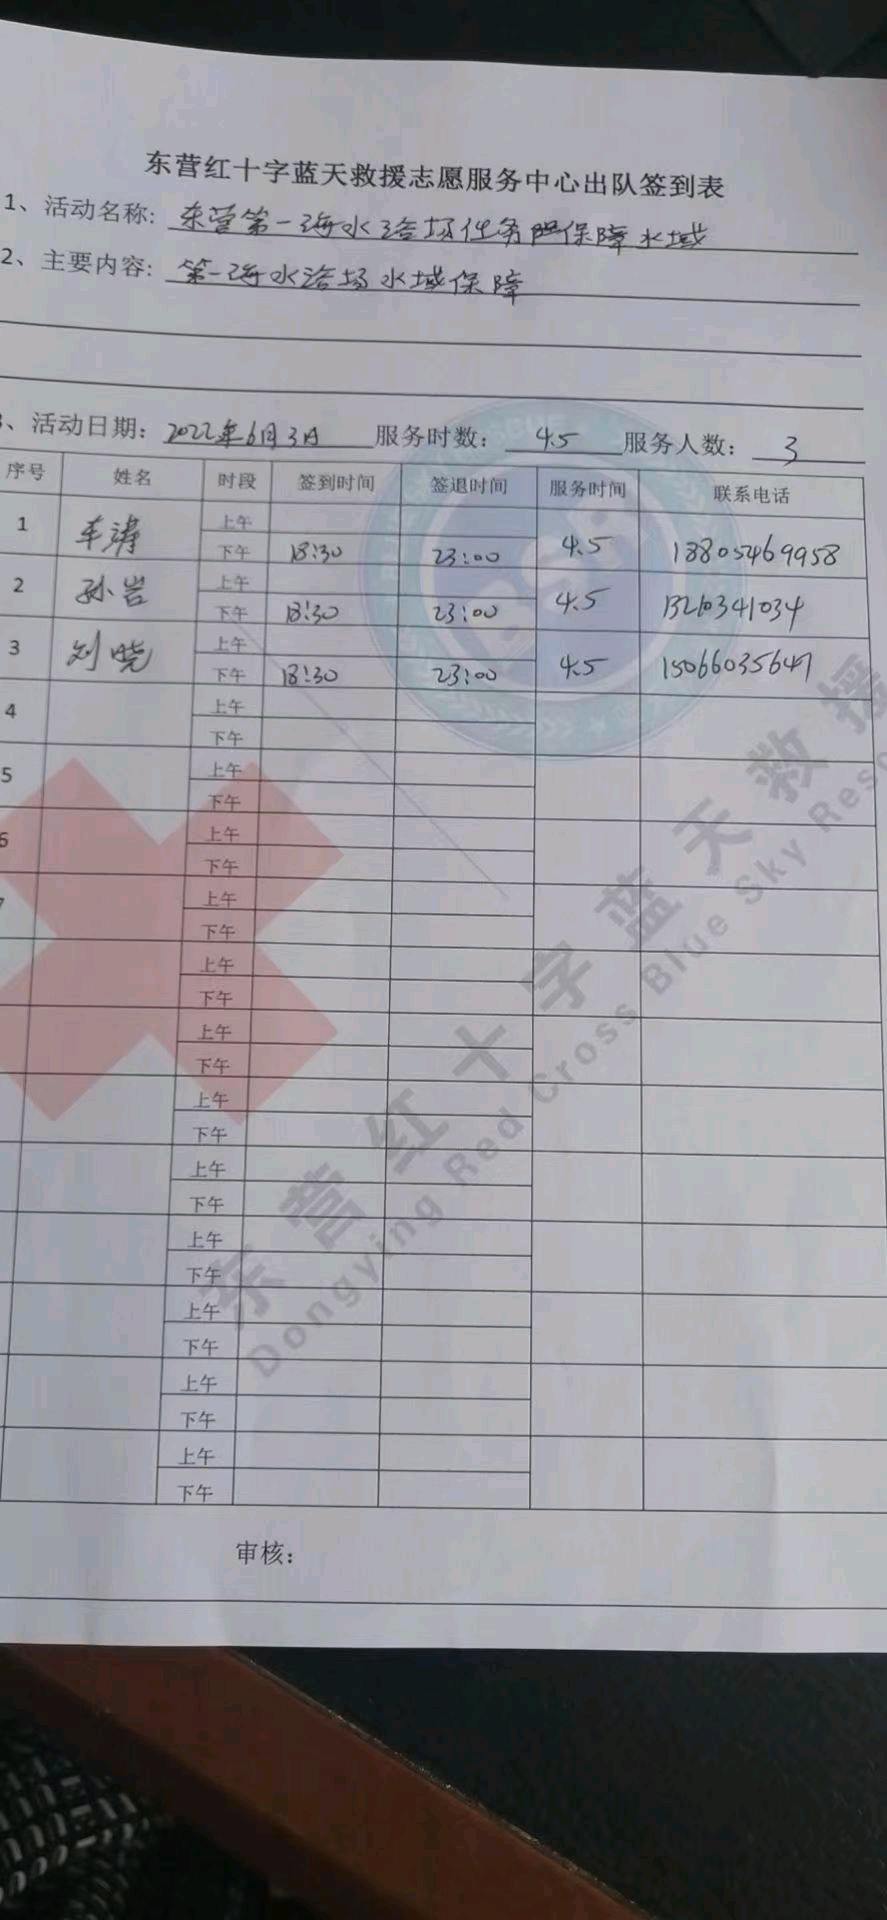 东营红十字蓝天救援志愿服务中心出队签到表
1、活动名称: 东营第一海水浴场任务 保障水域
2、主要内容: 第一海水浴场水域保障
、活动日期: 2022年6月3日 服务时数: 4.5 服务人数: 3
序号 姓名 时段 签到时间 签退时间 服务时间 联系电话
1 车涛 上午
下午 18:30 23:00 4.5 18805469958
2 孙岩 上午
下午 18:30 23:00 4.5
3 刘晓 上午
下午 18:30 23:00 4.5 15066035647
4 上午
下午
5 上午
下午
6 上午
下午
7 上午
下午
上午
下午
上午
下午
上午
下午
上午
下午
上午
下午
上午
下午
上午
下午
上午
下午
审核:
东营红十字蓝天救援
Dongying Red Cross Blue Sky Resc
BSR